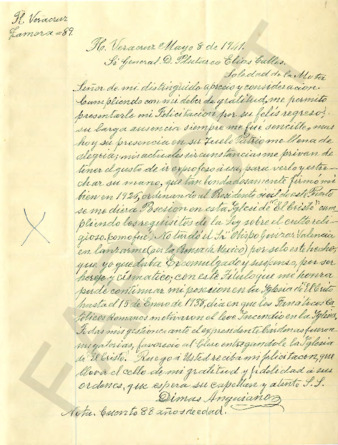 H. Veracruz
Zamora #89.
H. Veracruz Mayo 8 de 1941.
Sr General D. Plutarco Elías Calles.
Soledad de la Mota
Señor de mi distinguido aprecio y consideración
Cumpliendo con mi deber de gratitud, me permito
presentarle mi Felicitacion por su felís regreso;
su larga ausencia siempre me fué sencible, mas
hoy su presencia en su Suelo Patrio me llena de
alegria; mis actuales circunstancias me privan de
tener el gusto de ir exprofeso á esa, para verlo y estre-
char su mano, que tan bondadosamente firmó mi
bien en 1925, ordenando al
se me diera Posesion en la Iglecia "El Cristo" cum-
pliendo los requisitos de la Ley sobre el culto reli-
gioso, como fué. No tardó el Sr Obispo Guizar Valencia
en lanzarme (en la América Mexico) por solo este hecho,
que yo quedaba Excomulgado y suspenso, por ser
y cismatico, con este titulo que me honra
pude continuar mi posesion en la Iglesia El Cristo
hasta el 15 de Enero de 1938, dia en que los Fanaticos Ca-
tólicos Romanos motivaron el leve Incendio en la Iglesia,
todas mis gestiones ante el expresidente Cárdenas fueron
negatorias, favoreció al Clero entregandole la Iglesia
de El Cristo. Ruego á Usted reciba mi felicitacion, que
lleva el cello de mi gratitud y fidelidad á sus
ordenes, que espera su capellan y atento S. S.
Dimas Anguiano
Nota. Cuento 88 años de edad.
FAPECFT